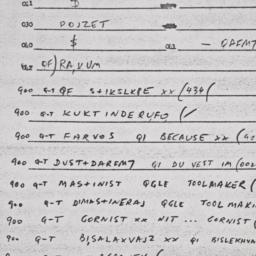 011 D
030 DOJZET
040 $ 041 - DAEM7
OF) RA, KUM
900 G-T QF S+IKSLKPE XX (434(
900 G-T KUKT INDERUFO (/
900 G-T FARVOS QI BECAUSE XX (
900 G-T DUST+DAREM7 QI DU VEST IM (
900 G-T MAS+INIST QGLE TOOLMAKER (
900 G-T DIMAS+INERAJ QGLE TOOL MAKI
900 G-T GORNIST XX NIT ... GORNIST (
900 G-T BJSALAXVAJ2 XX QI BISLEKHVA